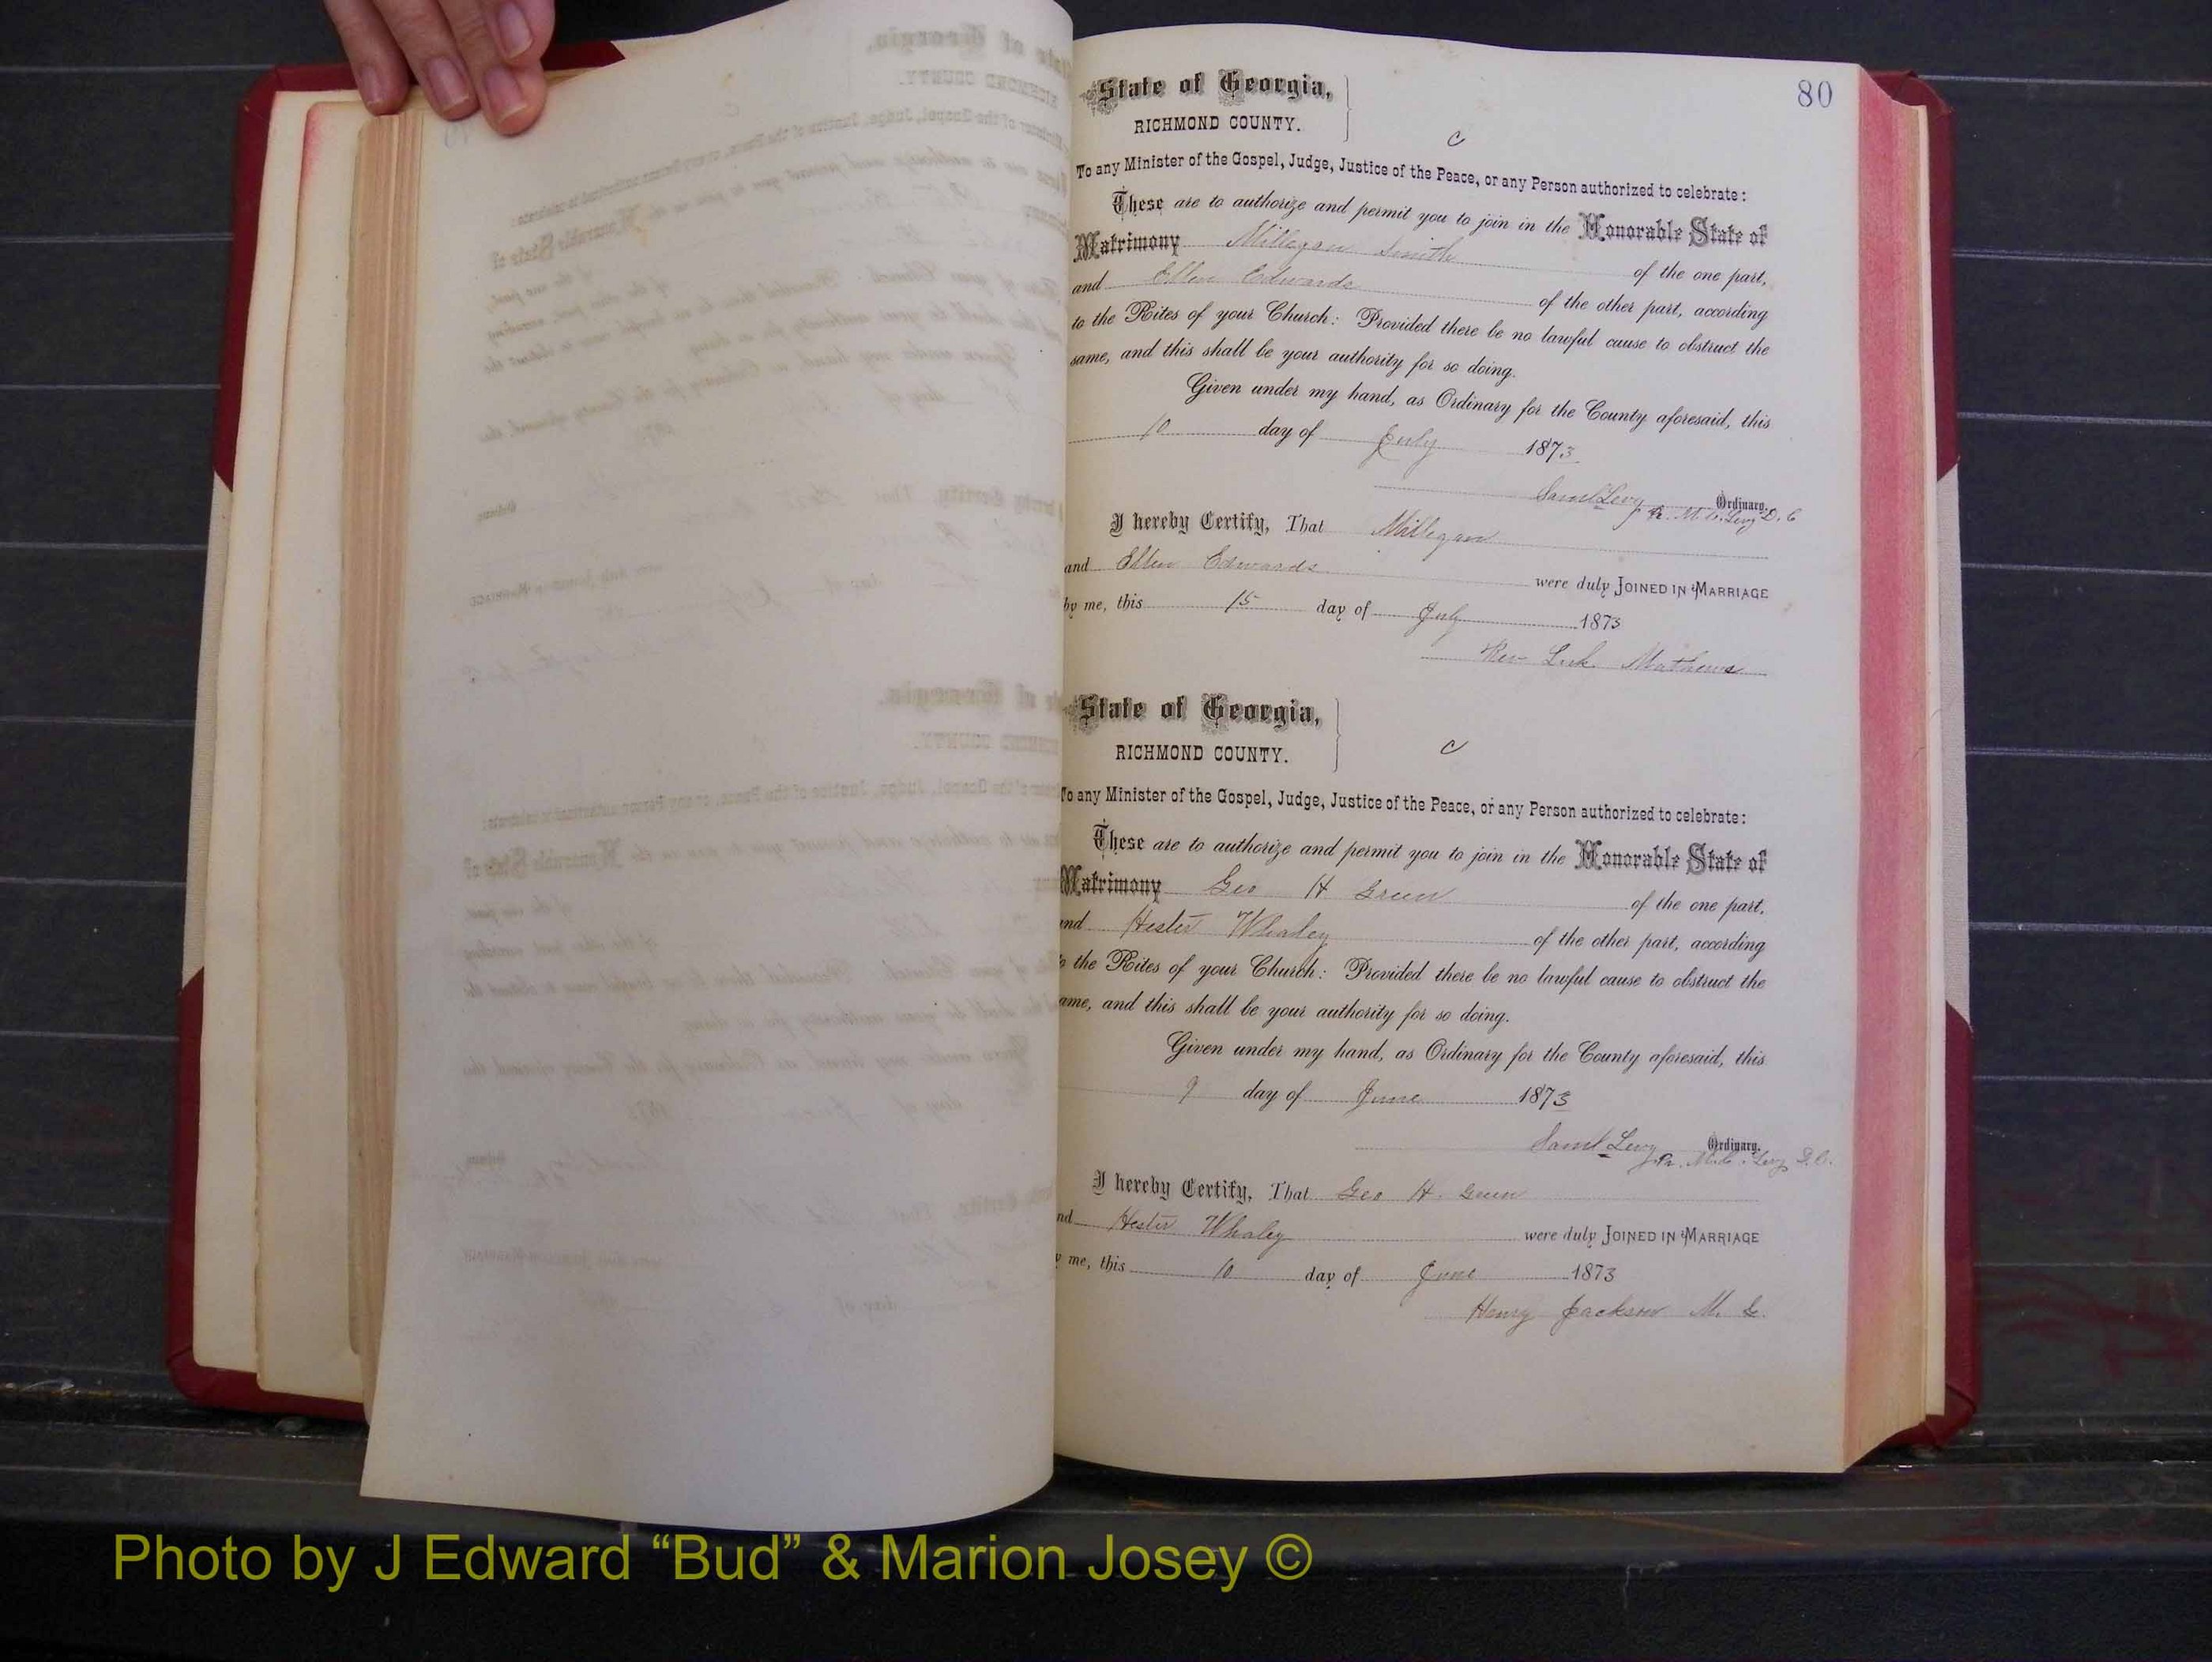 80
State of Georgia,
RICHMOND COUNTY.
C
To any Minister of the Gospel, Judge, Justice of the Peace, or any Person authorized to celebrate:
These are to authorize and permit you to join in the Honorable State of
Matrimony Millegan Smith of the one part,
and Ellen Edwards of the other part, according
to the Rites of your Church: Provided there be no lawful cause to obstruct the
same, and this shall be your authority for so doing.
Given under my hand, as Ordinary for the County aforesaid, this
10 day of July 1873
Saml Levy Ordinary.
Levy D. C
I hereby Certify, That Millegan
and Ellen Edwards were duly JOINED IN MARRIAGE
by me, this 15 day of July 1873
Rev Luk Mathews
State of Georgia,
RICHMOND COUNTY.
C
To any Minister of the Gospel, Judge, Justice of the Peace, or any Person authorized to celebrate:
These are to authorize and permit you to join in the Honorable State of
Matrimony Geo H Green of the one part,
and Hester Whaley of the other part, according
to the Rites of your Church: Provided there be no lawful cause to obstruct the
ame, and this shall be your authority for so doing.
Given under my hand, as Ordinary for the County aforesaid, this
9 day of June 1873
Saml Levy Ordinary.
Levy D. C.
I hereby Certify, That Geo H. Green
nd Hester Whaley were duly JOINED IN MARRIAGE
y me, this 10 day of June 1873
Henry Jackson M. G.
Photo by J Edward “Bud” & Marion Josey ©